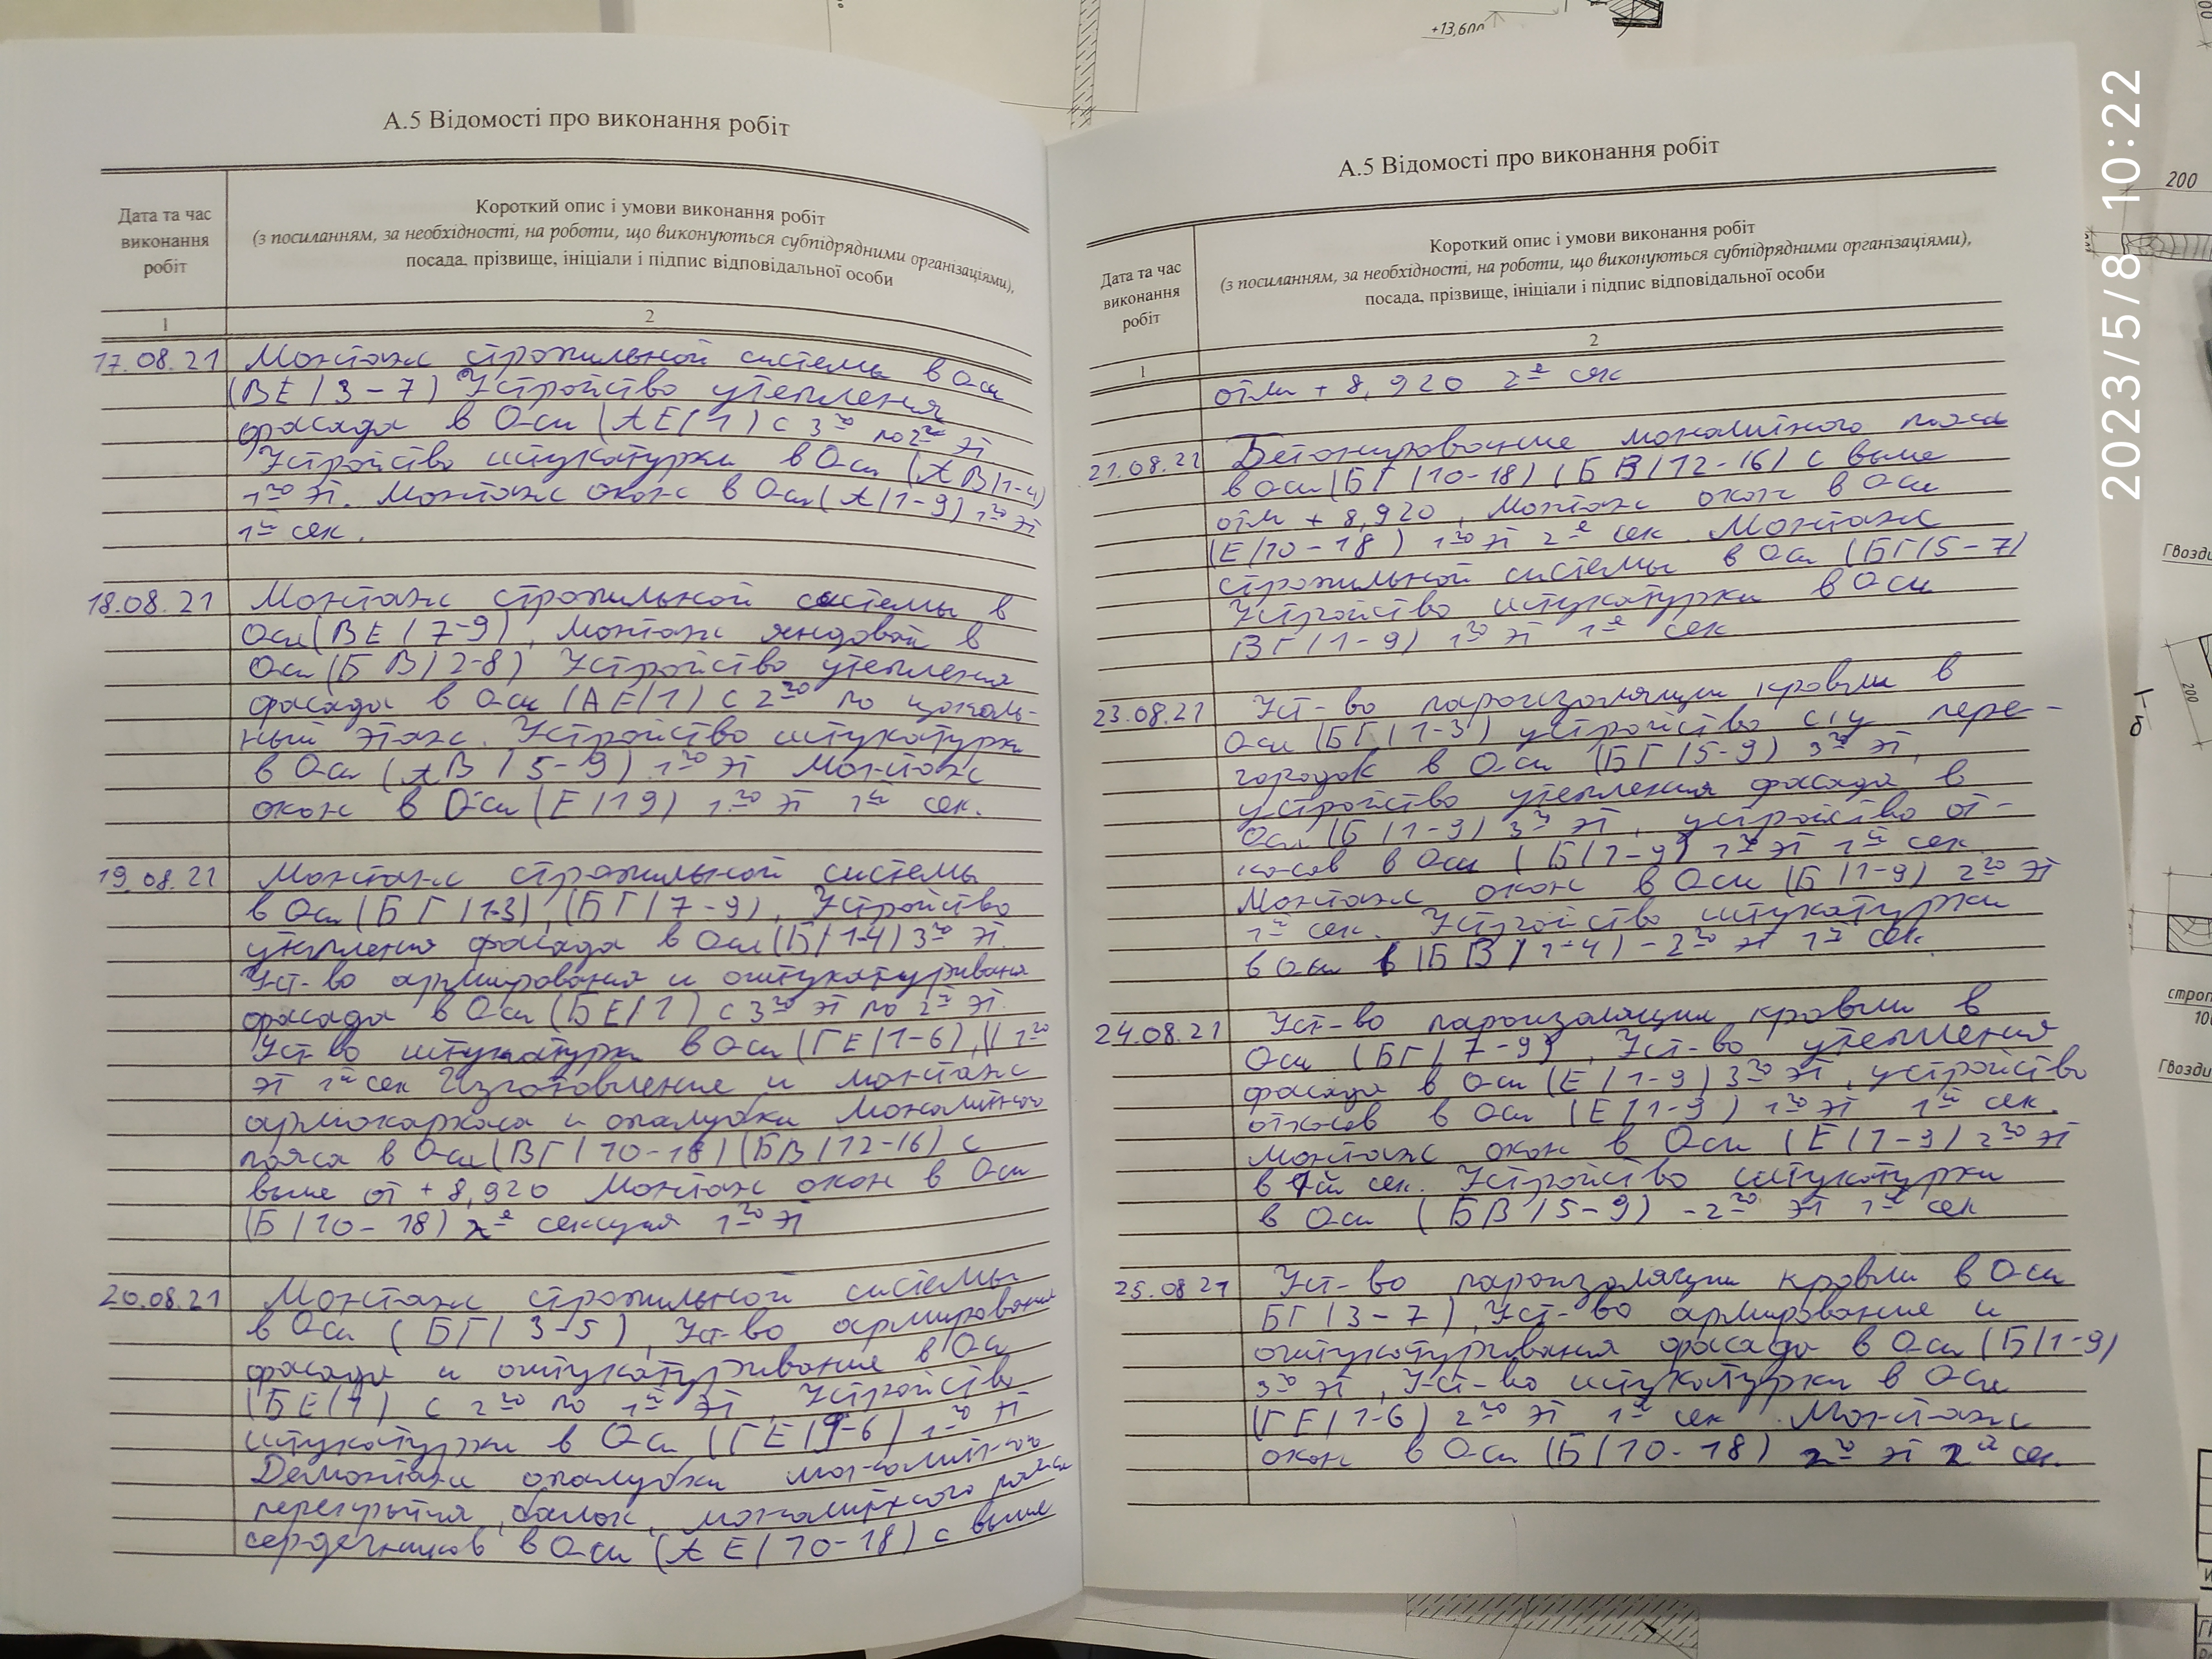 А.5 Відомості про виконання робіт
Дата та час
виконання
робіт
Короткий опис і умови виконання робіт
(з посиланням, за необхідності, на роботи, що виконуються субпідрядними організаціями),
посада, прізвище, ініціали і підпис відповідальної особи
1
2
17.08.21 Монтаж стропильной системы в Оси
(ВЕ/3-7) Устройство утепления
фасада в Оси (АЕ/1) с 3го по 2й эт
Устройство штукатурки в Оси (АВ/1-4)
1го эт. Монтаж окон в Оси (А/1-9) 1го эт
1й сек.
18.08.21 Монтаж стропильной системы в
Оси (ВЕ/7-9), Монтаж яндовой в
Оси (БВ/2-8) Устройство утепления
фасада в Оси (АЕ/1) с 2го по цоколь-
ный этаж. Устройство штукатурки
в Оси (АВ/5-9) 1го эт Монтаж
окон в Оси (Е/19) 1го эт 1й сек.
19.08.21 Монтаж стропильной системы
в Оси (БГ/1-3), (БГ/7-9), Устройство
утепления фасада в Оси (Б/1-4) 3го эт.
Уст-во армирования и оштукатуривания
фасада в Оси (БЕ/1) с 3го эт по 2й эт.
Уст-во штукатурки в Оси (ГЕ/1-6), 1го
эт 1й сек Изготовление и монтаж
армокаркаса и опалубки монолитного
пояса в Оси (ВГ/10-18) (БВ/12-16) с
выше от +8,920 Монтаж окон в Оси
(Б/10-18) 2й секция 1го эт
20.08.21 Монтаж стропильной системы
в Оси (БГ/3-5), Уст-во армирования
фасада и оштукатуривание в Оси
(БЕ/1) с 2го по 1й эт, Устройство
штукатурки в Оси (ГЕ/9-6) 1го эт
Демонтаж опалубки монолитного
перекрытия, балок, монолитного пояса
сердечников в Оси (АЕ/10-18) с выше
А.5 Відомості про виконання робіт
Дата та час
виконання
робіт
Короткий опис і умови виконання робіт
(з посиланням, за необхідності, на роботи, що виконуються субпідрядними організаціями),
посада, прізвище, ініціали і підпис відповідальної особи
1
2
отм +8,920 2й сек
21.08.21 Бетонирование монолитного пояса
в Оси (БГ/10-18) (БВ/12-16) с выше
отм +8,920, Монтаж окон в Оси
(Е/10-18) 1го эт 2й сек. Монтаж
стропильной системы в Оси (БГ/5-7)
Устройство штукатурки в Оси
ВГ/1-9) 1го эт 1й сек
23.08.21 Уст-во пароизоляции кровли в
Оси (БГ/1-3) устройство с/у пере-
городок в Оси (БГ/5-9) 3го эт,
устройство утепления фасада в
Оси (Б/1-9) 3го эт, устройство от-
косов в Оси (Б/1-9) 1го эт 1й сек
Монтаж окон в Оси (Б/1-9) 2го эт
1й сек. Устройство штукатурки
в Оси в (БВ/1-4) - 2го эт 1й сек.
24.08.21 Уст-во пароизоляции кровли в
Оси (БГ/7-9), Уст-во утепления
фасада в Оси (Е/1-9) 3го эт, устройство
откосов в Оси (Е/1-9) 1го эт 1й сек.
Монтаж окон в Оси (Е/1-9) 2го эт
в 1й сек. Устройство штукатурки
в Оси (БВ/5-9) - 2го эт 1й сек
25.08 21 Уст-во пароизоляции кровли в Оси
БГ/3-7), Уст-во армирование и
оштукатуривания фасада в Оси (Б/1-9)
3го эт, Уст-во штукатурки в Оси
(ГЕ/1-6) 2го эт 1й сек. Монтаж
окон в Оси (Б/10-18) 2го эт 2й сек.
+13,600
200
200
Гвозди
Гвозди
б
2023/5/8 10:22